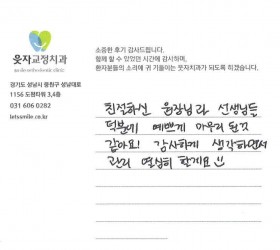 웃자교정치과
소중한 후기 감사드립니다.
함께 할 수 있었던 시간에 감사하며,
환자분들의 소리에 귀 기울이는 웃자치과가 되도록 하겠습니다.
경기도 성남시 중원구 성남대로
1156 도원타워 3,4층
031 606 0282
letssmile.co.kr
친절하신 원장님과 선생님들
덕분에 예쁘게 마무리 된것
같아요! 감사하게 생각하면서
관리 열심히 할게요